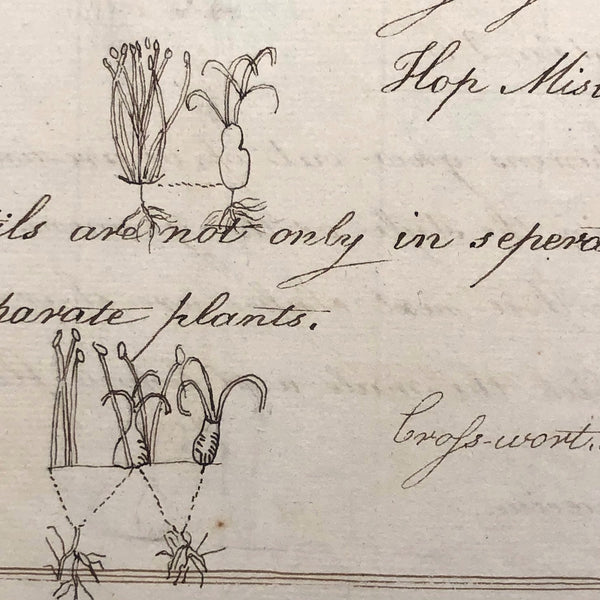 Hop Mis
ils are not only in sepera
parate plants.
Croſs-wort.